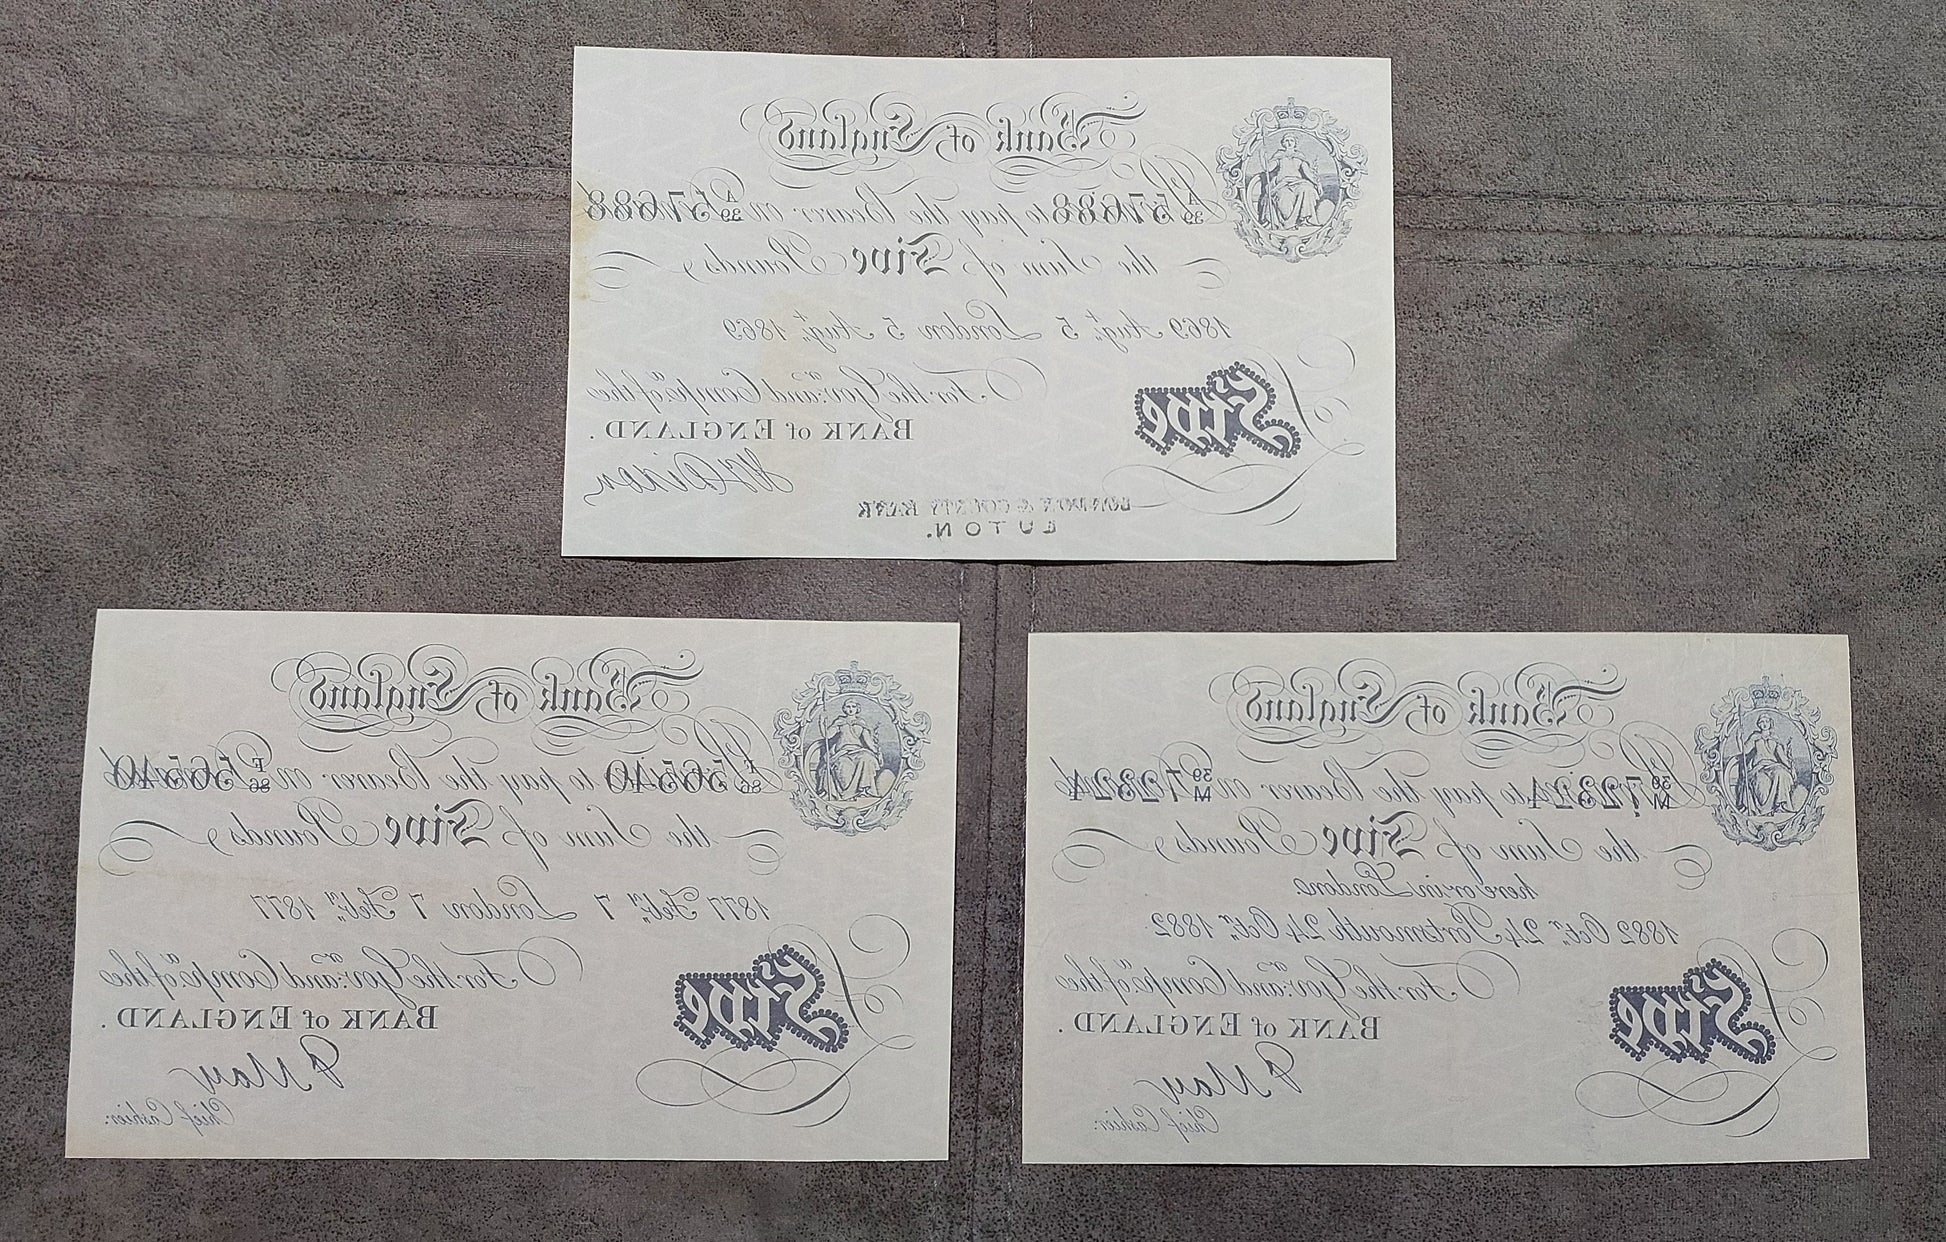 Bank of England
A/39 57688 to pay the Bearer on A/39 57688
the Sum of Five Pounds
1869 Augt. 5 London 5 Augt. 1869
For the Govr. and Compa. of the
BANK of ENGLAND.
Five
LONDON & COUNTY BANK
LUTON.
Bank of England
F/86 56540 to pay the Bearer on F/86 56540
the Sum of Five Pounds
1877 Feby. 7 London 7 Feby. 1877
For the Govr. and Compa. of the
BANK of ENGLAND.
Five
F May
Chief Cashier.
Bank of England
39/M 72324 to pay the Bearer on 39/M 72324
the Sum of Five Pounds
here or in London
1882 Octr. 24 Portsmouth 24 Octr. 1882
For the Govr. and Compa. of the
BANK of ENGLAND.
Five
F May
Chief Cashier.